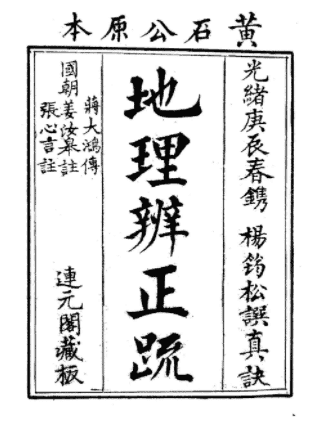 黃石公原本
光緒庚辰春鐫　楊筠松譔真訣
地理辨正疏
蔣大鴻傳
國朝姜汝皋註
張心言註
連元閣藏板